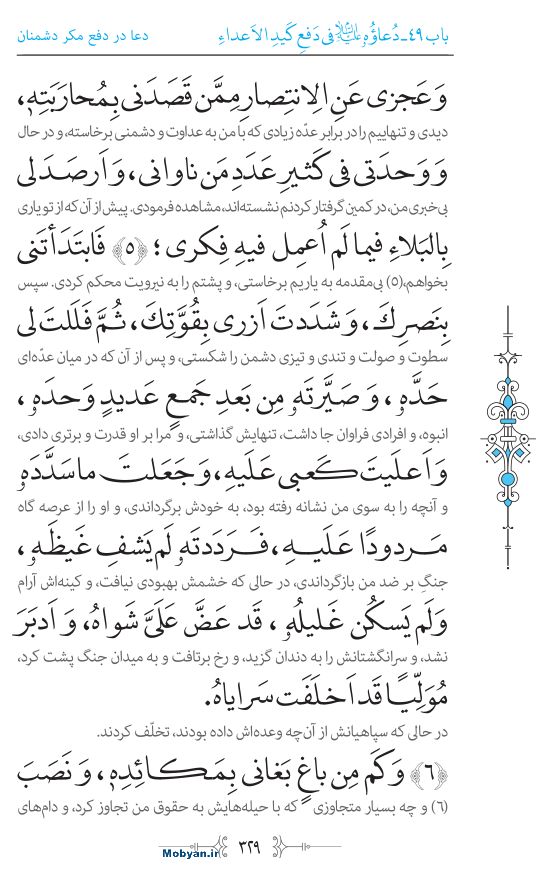 باب ۴۹ـ دُعاؤُهُ ﷷ فی دَفعِ کَیدِ الاَعداءِ
دعا در دفع مکر دشمنان
وَ عَجزی عَنِ الِانتِصارِ مِمَّن قَصَدَنی بِمُحارَبَتِهِ،
دیدی و تنهاییم را در برابر عدّه زیادی که با من به عداوت و دشمنی برخاسته، و در حال
وَ وَحدَتی فی کَثیرِ عَدَدِ مَن ناوانی، وَ اَرصَدَ لی
بی‌خبری من، در کمین گرفتار کردنم نشسته‌اند، مشاهده فرمودی. پیش از آن که از تو یاری
بِالبَلاءِ فیما لَم اُعمِل فیهِ فِکری؛ ﴿۵﴾ فَابتَدَأتَنی
بخواهم،(۵) بی‌مقدمه به یاریم برخاستی، و پشتم را به نیرویت محکم کردی. سپس
بِنَصرِكَ، وَ شَدَدتَ اَزری بِقُوَّتِكَ، ثُمَّ فَلَلتَ لی
سطوت و صولت و تندی و تیزی دشمن را شکستی، و پس از آن که در میان عدّه‌ای
حَدَّهُ، وَ صَیَّرتَهُ مِن بَعدِ جَمعٍ عَدیدٍ وَحدَهُ،
انبوه، و افرادی فراوان جا داشت، تنهایش گذاشتی، و مرا بر او قدرت و برتری دادی،
وَ اَعلَیتَ کَعبی عَلَیهِ، وَ جَعَلتَ ما سَدَّدَهُ
و آنچه را به سوی من نشانه رفته بود، به خودش برگرداندی، و او را از عرصه گاه
مَردودًا عَلَیهِ، فَرَدَدتَهُ لَم یَشفِ غَیظَهُ،
جنگِ بر ضد من بازگرداندی، در حالی که خشمش بهبودی نیافت، و کینه‌اش آرام
وَلَم یَسکُن غَلیلُهُ، قَد عَضَّ عَلَیَّ شَواهُ، وَ اَدبَرَ
نشد، و سرانگشتانش را به دندان گزید، و رخ برتافت و به میدان جنگ پشت کرد،
مُوَلِّیًا قَد اَخلَفَت سَرایاهُ.
در حالی که سپاهیانش از آن‌چه وعده‌اش داده بودند، تخلّف کردند.
﴿۶﴾ وَ کَم مِن باغٍ بَغانی بِمَکائِدِهِ، وَ نَصَبَ
(۶) و چه بسیار متجاوزی که با حیله‌هایش به حقوق من تجاوز کرد، و دام‌های
۳۲۹
Mobyan.ir